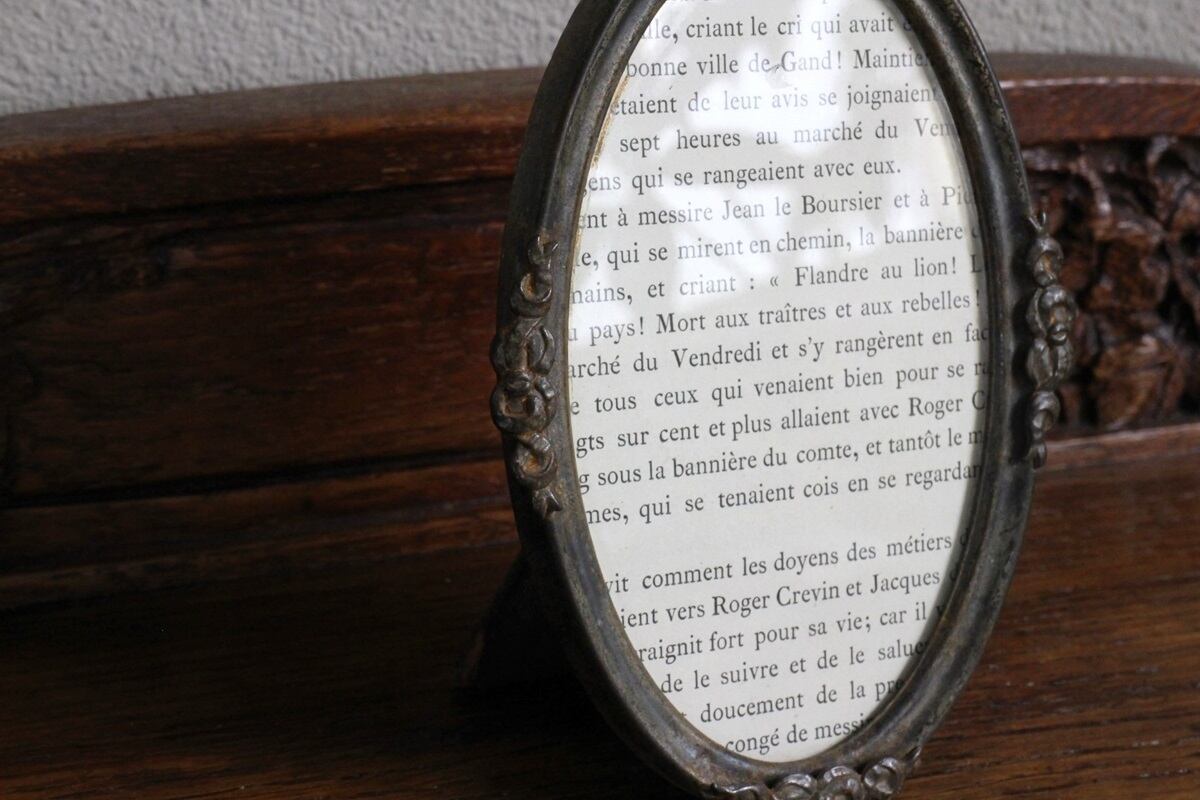 criant le cri qui avait
bonne ville de Gand! Maintie
étaient de leur avis se joignaient
sept heures au marché du Ven
gens qui se rangeaient avec eux.
ent à messire Jean le Boursier et à Pi
le, qui se mirent en chemin, la bannière
mains, et criant : « Flandre au lion! L
u pays! Mort aux traîtres et aux rebelles!
arché du Vendredi et s'y rangèrent en fac
e tous ceux qui venaient bien pour se ra
gts sur cent et plus allaient avec Roger C
g sous la bannière du comte, et tantôt le m
mes, qui se tenaient cois en se regardan
vit comment les doyens des métiers
ient vers Roger Crevin et Jacques
raignit fort pour sa vie; car il v
de le suivre et de le salue
doucement de la pre
congé de messi